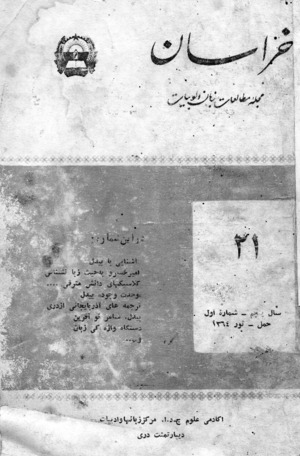 خراسان
مجله مطالعات زبان و ادبیات
در این شماره:
آشنایی با بیدل
امیرخسرو و مبحث زیباشناسی
کلاسیکهای دانش شرقی ....
وحدت وجود، بیدل
ترجمه های آذربایجانی از دری
بیدل، شاعر نو آفرین
دستگاه واژه کی زبان
و....
۲۱
سال پنجم – شمارهٔ اول
حمل – ثور ۱۳۶۴
اکادمی علوم ج.د.ا. مرکز زبانها و ادبیات
دیپارتمنت دری